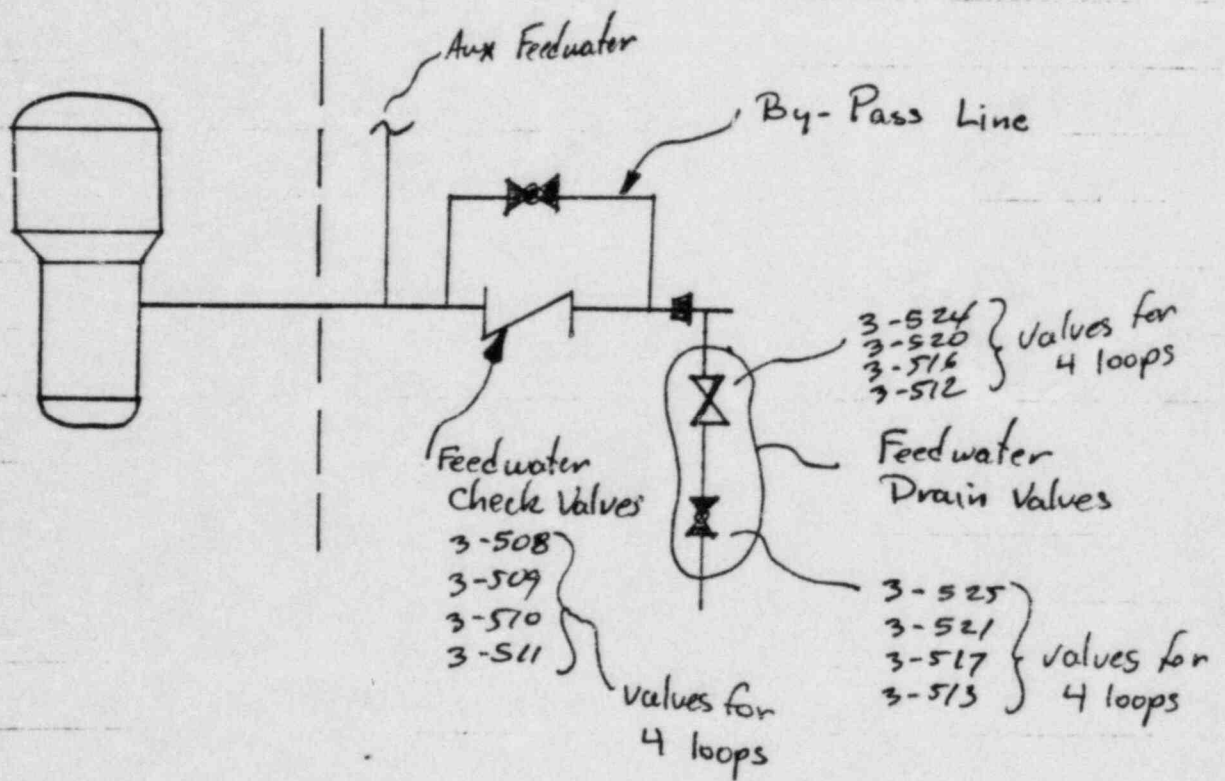 Aux Feedwater
By-Pass Line
3-524
3-520
3-516
3-512
valves for
4 loops
Feedwater
Drain Valves
Feedwater
Check Valves
3-508
3-509
3-510
3-511
valves for
4 loops
3-525
3-521
3-517
3-513
valves for
4 loops